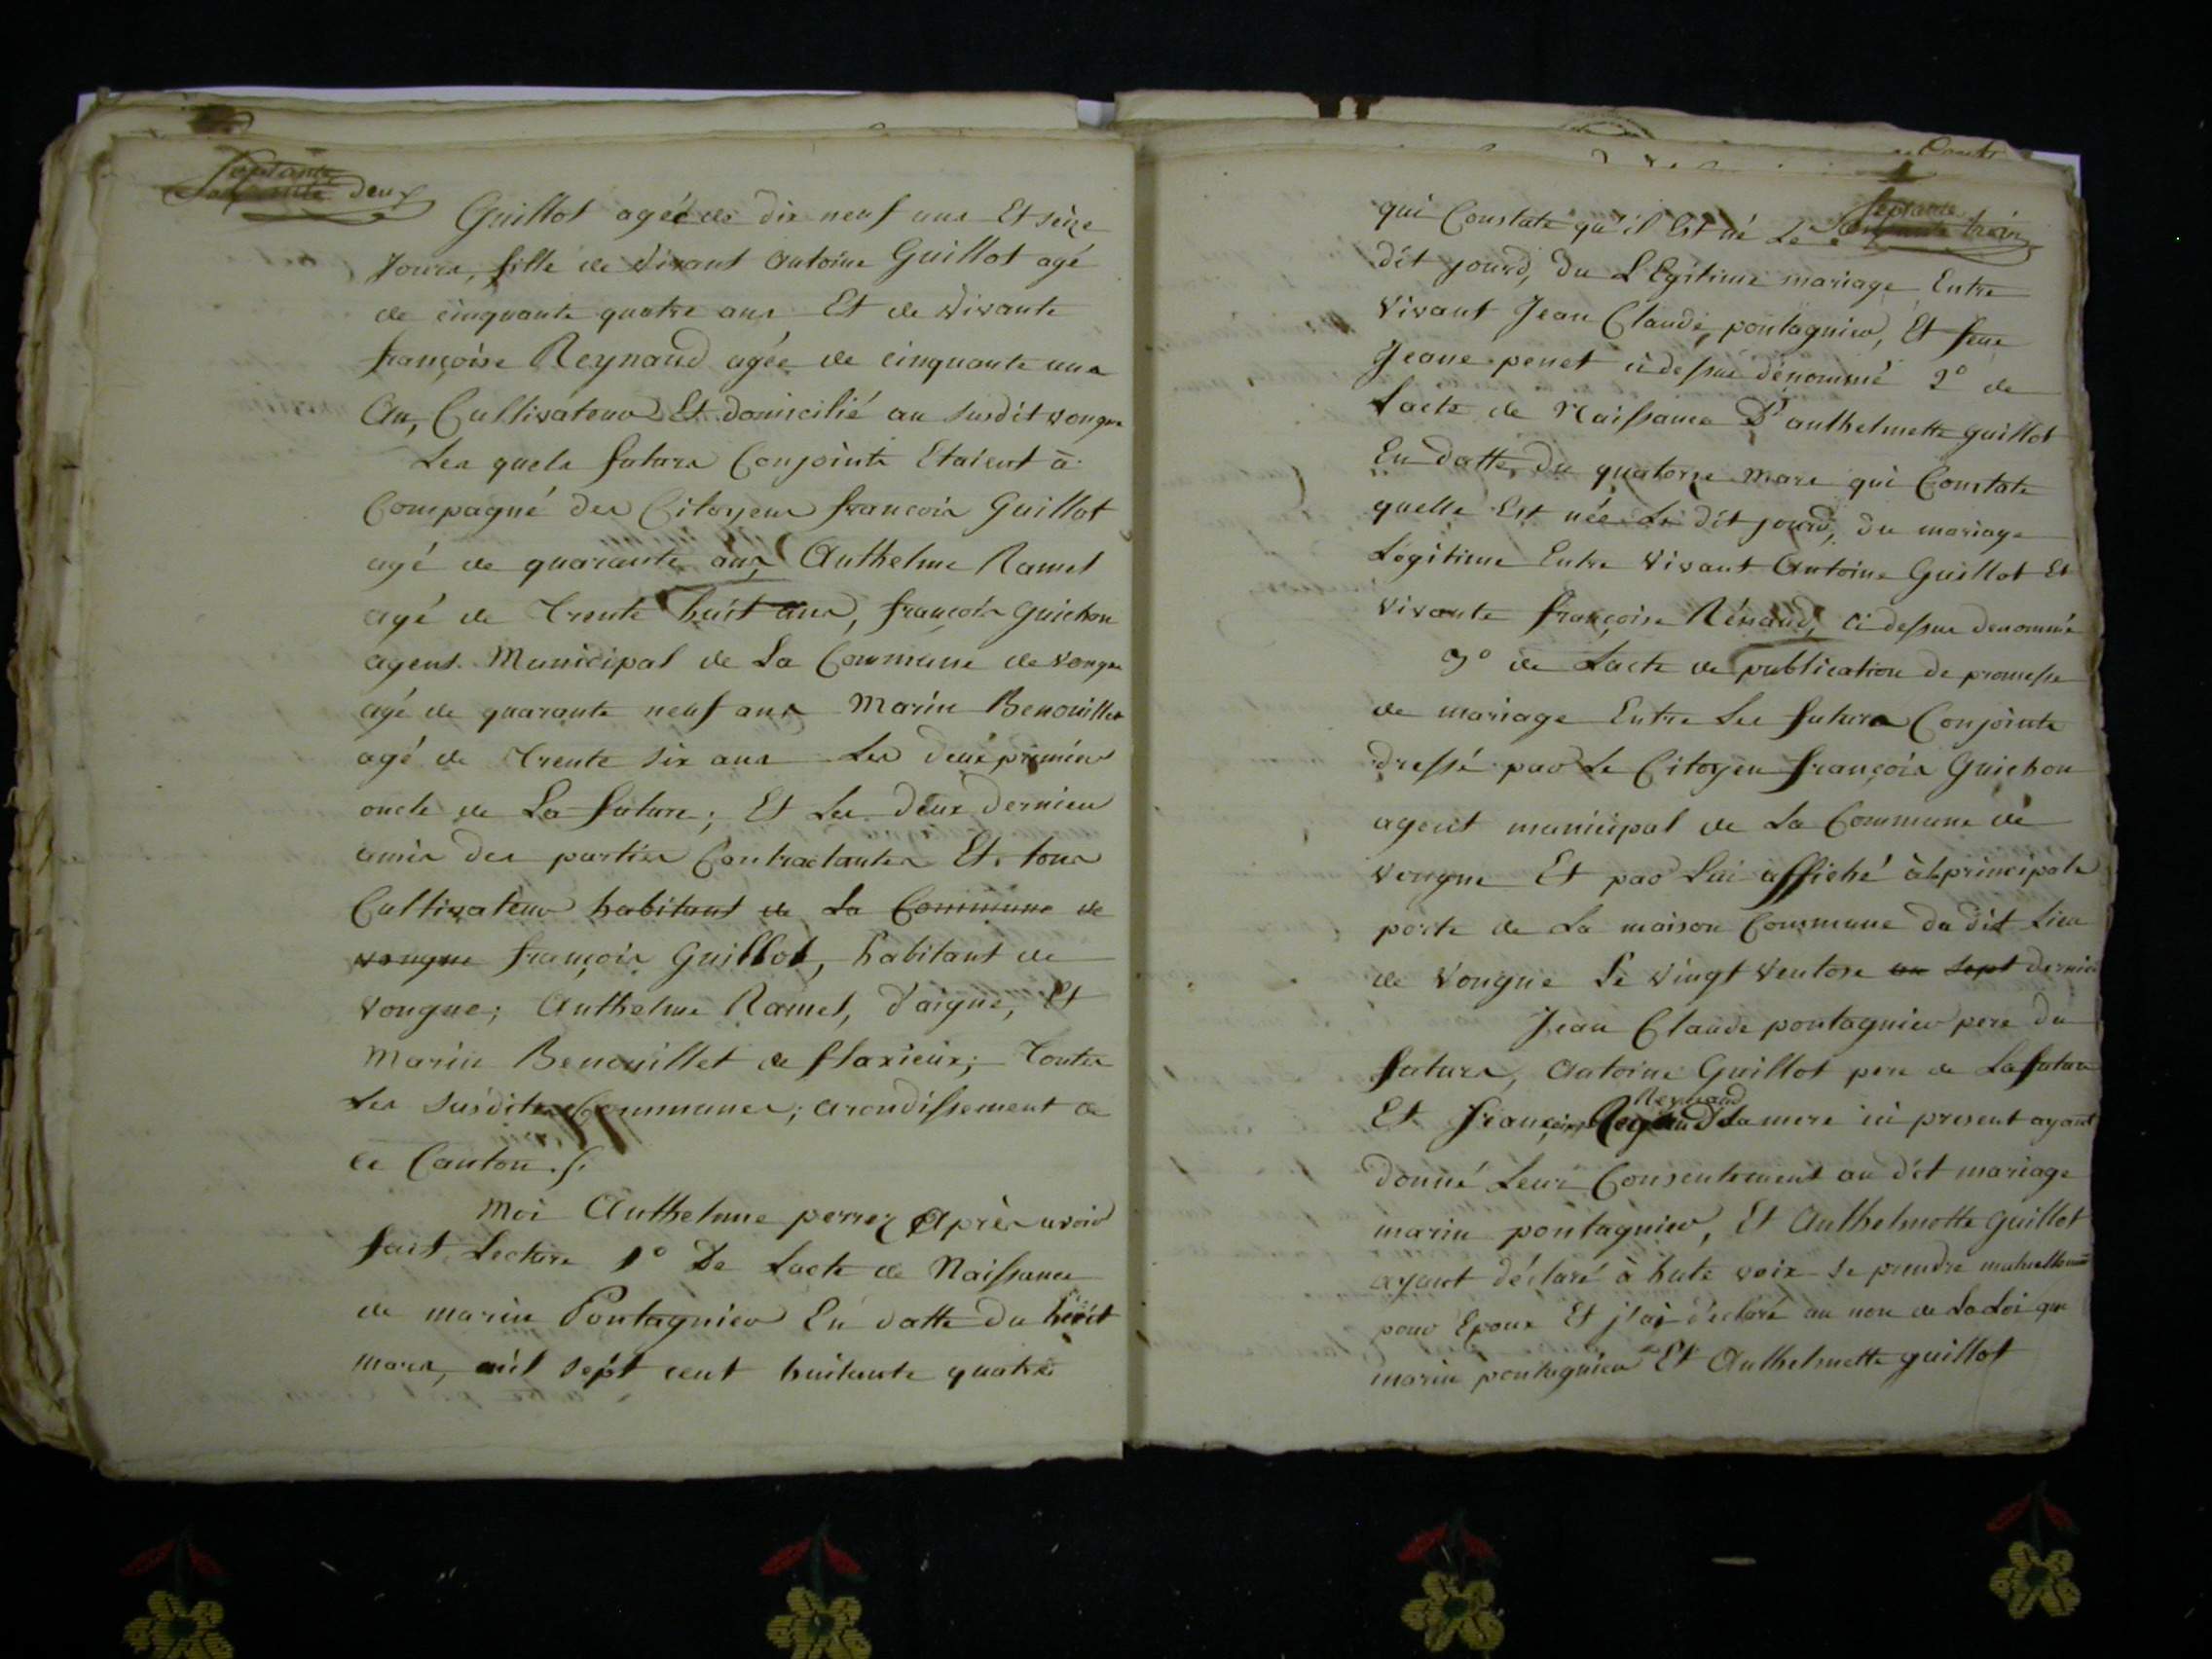 Septante
Soixante deux
Guillot agée de dix neuf ans Et seize
Jours, fille de vivant Antoine Guillot agé
de cinquante quatre ans Et de vivante
françoise Reynaud agée de cinquante un
An, Cultivateur Et domicilié au susdit vongne
Les quels futurs Conjoints Etaient à
Compagné des Citoyens francois Guillot
agé de quarante ans, Anthelme Ramel
agé de trente huit ans, francois Guichon
agent Municipal de La Commune de vongne
agé de quarante neuf ans Marin Benouillet
agé de trente six ans Les deux premiers
oncle de La future; Et Les deux derniers
amis des parties Contractantes Et tous
Cultivateur habitant de La Commune de
vongne françois Guillot, habitant de
vongne; Anthelme Ramel, d'aigne, Et
Marin Benouillet de flaxieux; toutes
Les susdites Communes; arondissement de
ce Canton.
Moi Anthelme perrez Après avoir
fait Lecture 1° De Lacte de Naissance
de marin Pontagnier En datte du huit
mars, mil sept cent huitante quatre
Septante
Soixante trois
qui Constate qu'il Est né Le
dit jourd, du LEgitime mariage Entre
Vivant Jean Claude pontagnier, Et feue
Jeane penet ci dessus dénommé 2° de
Lacte de Naissance D'anthelmette guillot
En datte du quatorze mars qui Constate
quelle Est née Le dit jourd, du mariage
Légitime Entre vivant Antoine Guillot Et
vivante françoise Rénaud, ci dessus denommé
3° de Lacte de publication de promesse
de mariage Entre Les futurs Conjoints
dressé par Le Citoyen françois Guichon
agent municipal de La Commune de
vongne Et par Lui affiché à Lprincipale
porte de La maison Commune du dit Lieu
de Vongne Le vingt ventose an sept dernier
Jean Claude pontagnier pere du
futurs, Antoine Guillot pere de La future
Reynaud
Et françoise Reynaud La mere ici present ayant
donné Leur Consentement au dit mariage
marin pontagnier, Et Anthelmette guillot
ayant déclaré à hute voix se prendre mutuellement
pour Epoux Et j'ai déclaré au non de La Loi que
marin pontagnier Et Anthelmette guillot